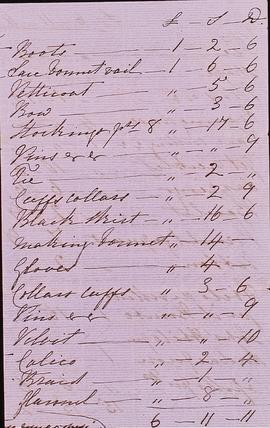 £ — S — D.
Boots — 1 — 2 — 6
Lace bonnet vail — 1 — 6 — 6
Petticoat — „ — 5 — 6
Bow — „ — 3 — 6
Stockings prs 8 „ — 17 — 6
Pins &c &c — „ — „ — 9
Tie — „ — 2 — „
Cuffs collars — „ — 2 — 9
Black Skirt — „ — 16 — 6
making bonnet „ — 14 —
Gloves — „ — 4 —
Collars cuffs „ — 3 — 6
Pins &c &c — „ — „ — 9
Velvit — „ — „ — 10
Calico — „ — 2 — 4
Braid — „ — 1 — „
Flannel — „ — 8 — „
6 — 11 — 11